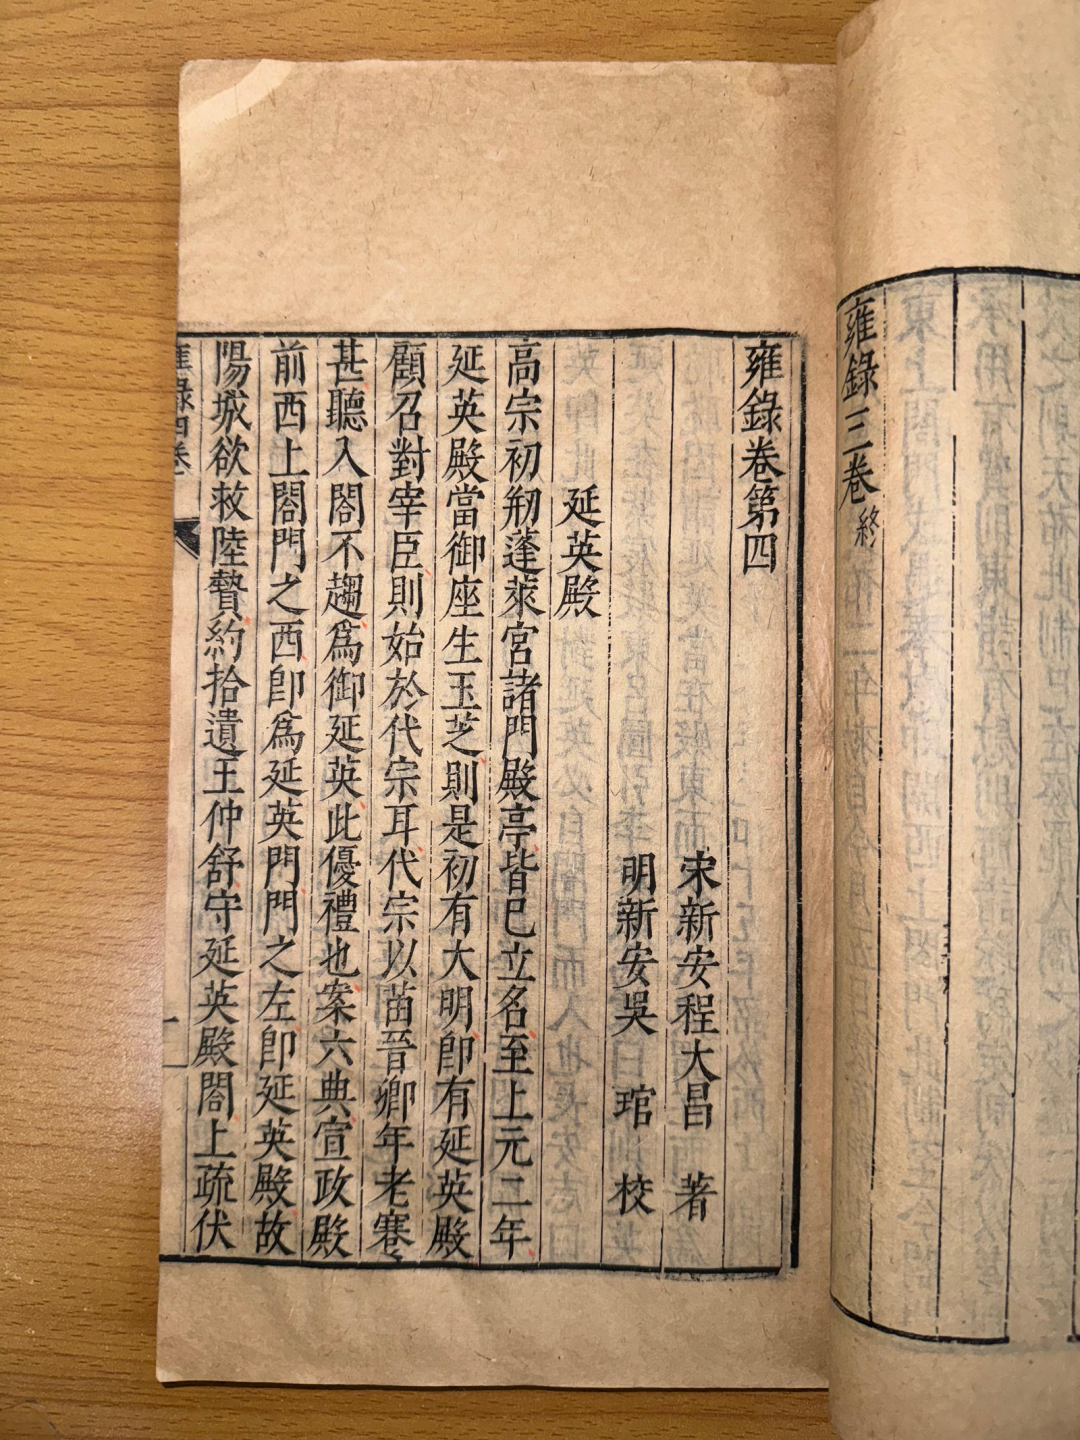 雍錄三卷終
雍錄卷第四
宋新安程大昌 著
明新安吳 琯 校
延英殿
高宗初剏蓬萊宮諸門殿亭皆巳立名至上元二年
延英殿當御座生玉芝則是初有大明卽有延英殿
顧召對宰臣則始於代宗耳代宗以苗晉卿年老蹇
甚聽入閤不趨爲御延英此優禮也案六典宣政殿
前西上閤門之西卽爲延英門門之左卽延英殿故
陽城欲救陸贄約拾遺王仲舒守延英殿閤上疏伏
雍錄四卷
一